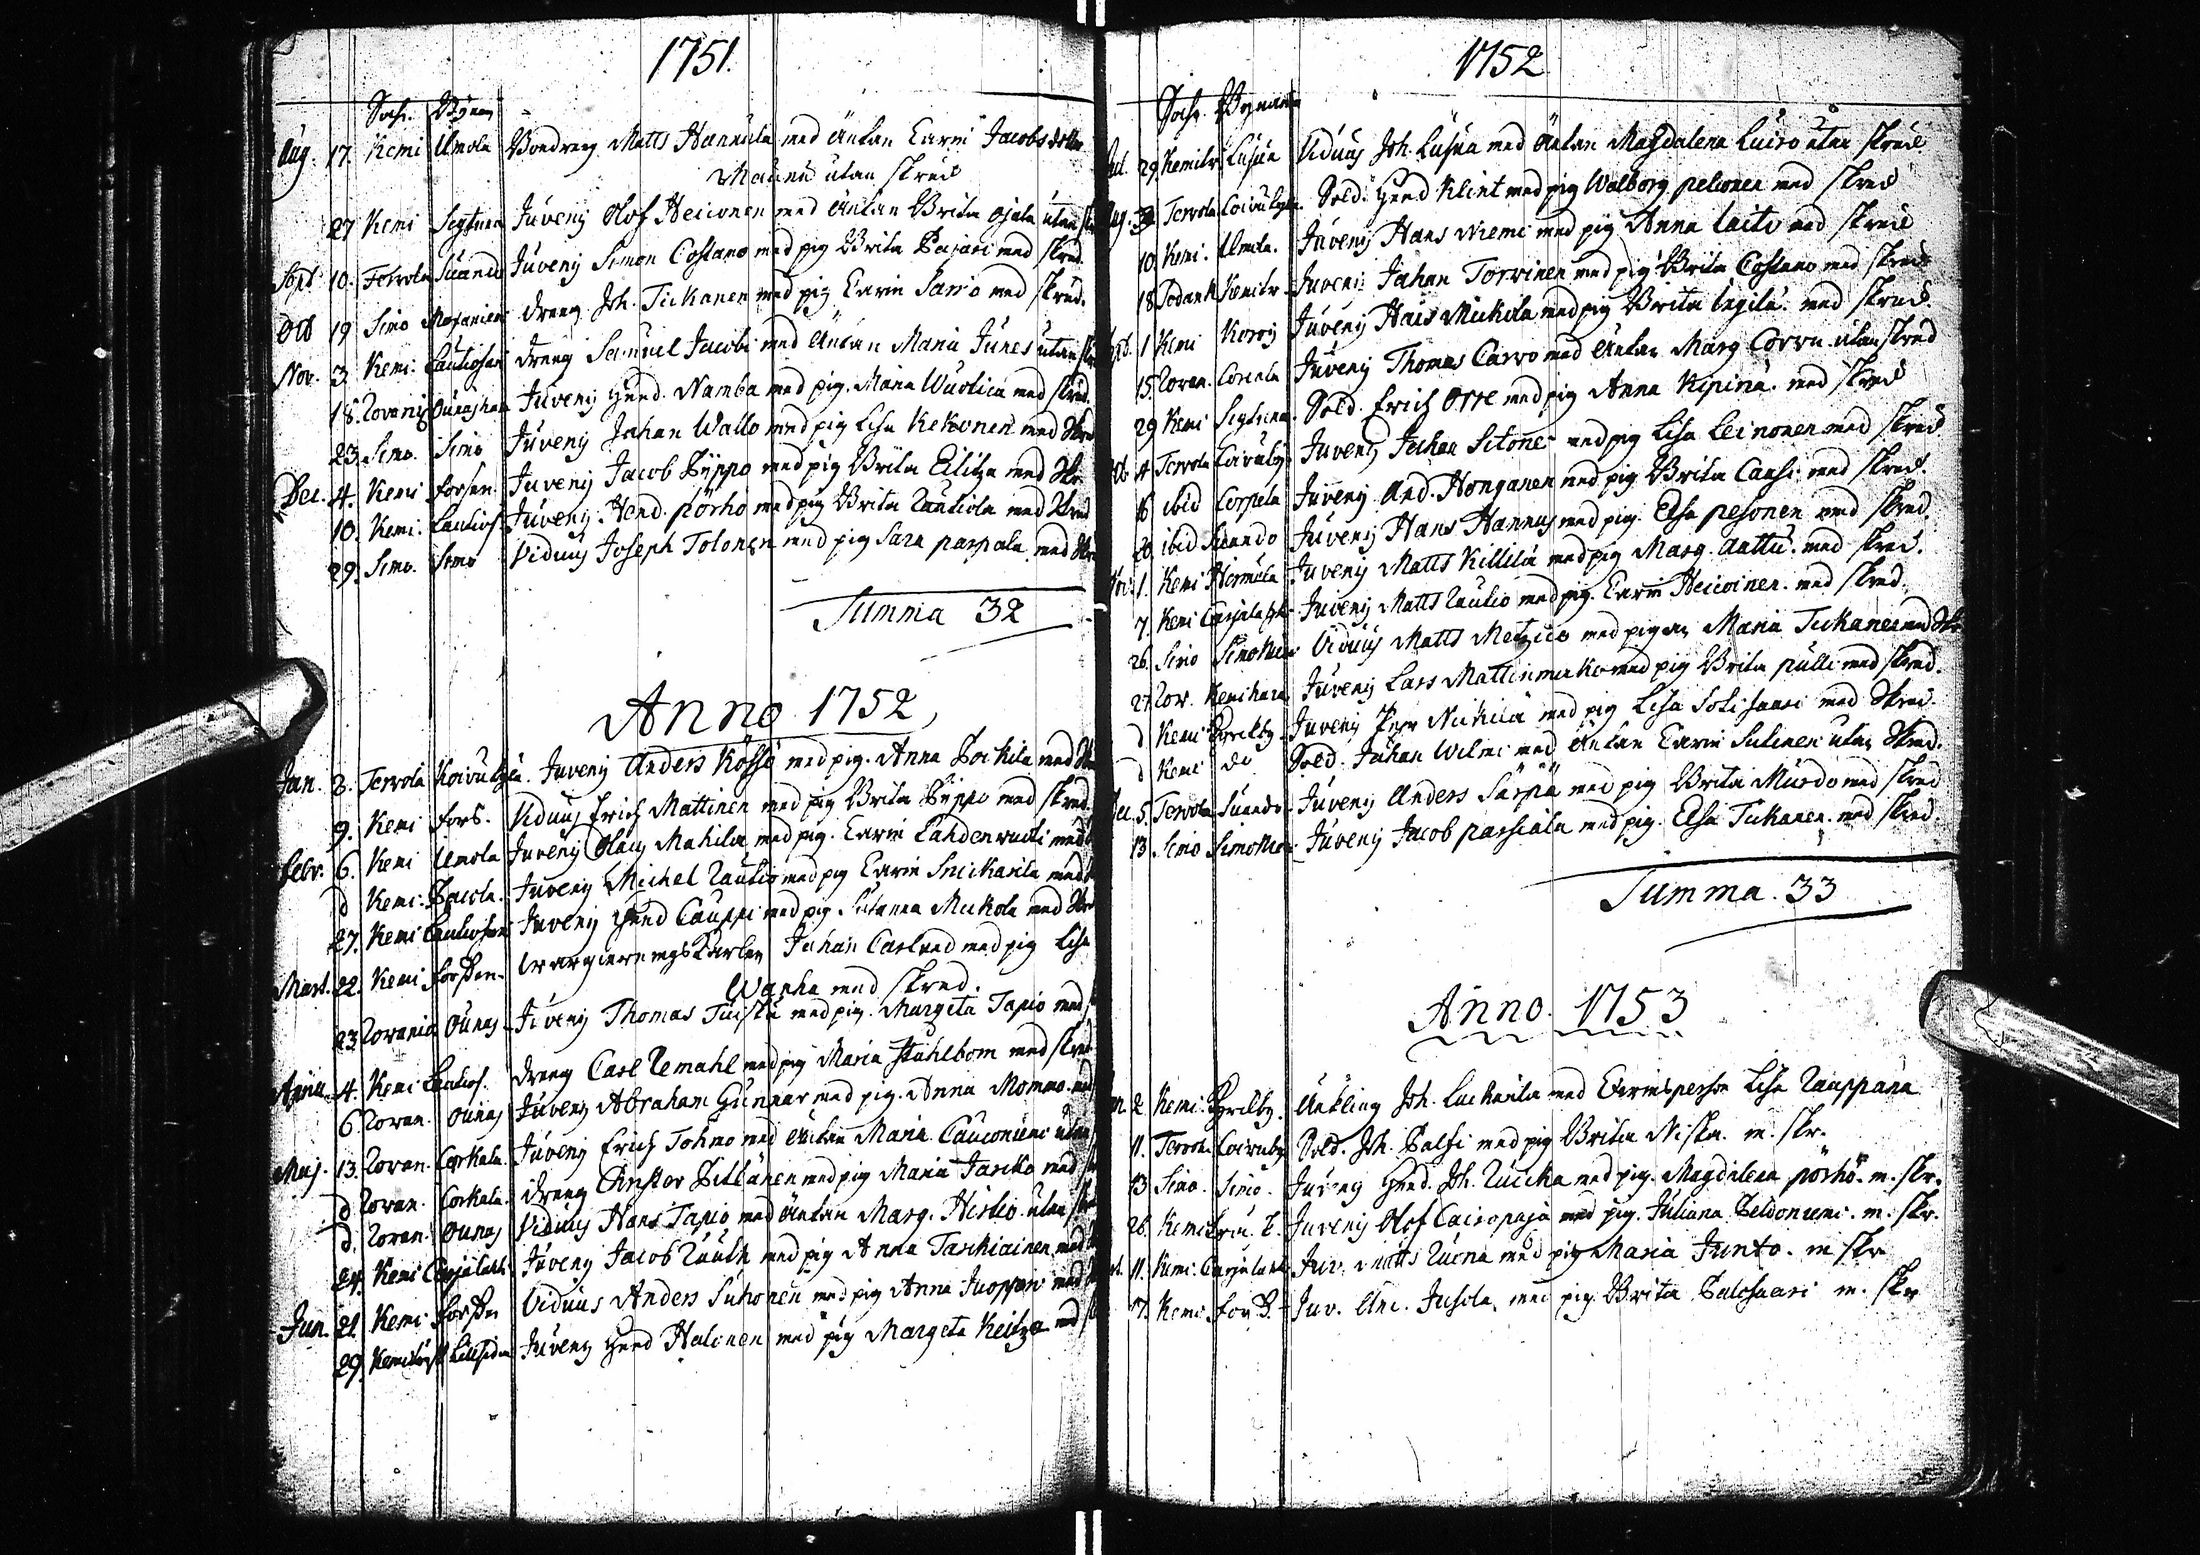 1751.
Sochn. Byarn
Aug. 17. Kemi Ilmola Bondreng Matts Hannula med Änkan Carin Jacobsdotter
Maunu utan skrud
27 Kemi Juveny Olof Heiconen med Änkan Brita Ojala utan
Sept. 10. Tervola Suando Juveny Simon Costamo med pig Brita Pajari med skrud.
Oct 19 Simo dreng Joh. Tickanen med pig Carin Sario med skrud.
Nov. 3 Kemi. Lautiosari dreng Samuel Jacobi med Änkan Maria Junes utan
18. Rovanij Ounashari Juveny Hend. Namba med pig. Maria Wuolica med skrud.
23. Simo. Simo Juveny Johan Wallo med pig Lisa Kekonen med Skrud
Dec. 4. Kemi Forsen. Juveny Jacob Pyppo med pig Brita Eilitza med Skr
10. Kemi. Lautios Juveny Hend. Pörhö med pig Brita Rautiola med Skrud
29. Simo. Simo Viduus Joseph Tolonen med pig Sara Paspala med Skr
Summa 32
Anno 1752
Jan. 3. Tervola Koivukylä. Juveny Anders Kössö med pig. Anna Poikila med Sk
9. Kemi Fors. Viduus Erich Mattinen med pig Brita Pyppo med skrud.
Febr. 6. Kemi Ilmola Juveny Olaus Mahila med pig. Carin Lahdenvuoti med
d Kemi. Paicola. Juveny Michel Rautio med pig Carin Snickarila med
27. Kemi Lautiosari Juveny Hend Cauppi med pig. Susanna Mickola med Skr
Mart. 22. Kemi Forssen. Wargierings Karlen Johan Carlund med pig Lisa
Wanha med skrud.
23. Rovanie Ounas. Juveny Thomas Tuisku med pig. Margeta Tapio med
April 4. Kemi Lautios. dreng Carl Remahl med pig Maria Ståhlbom med skrud
6. Rovan. Ounas Juveny Abraham Gunnar med pig. Anna Mommo. med
Maj. 13. Rovan. Corkala. Juveny Erich Tohmo med Änkan Maria Cauconiemi utan
d Rovan. Corkala. dreng Christer Pittänen med pig Maria Jaricko med
d. Rovan. Ounas Viduus Hans Tapio med Änkan Marg. Hirtio. utan skr
24. Kemi Carjalath. Juveny Jacob Rautu med pig Anna Taskiainen med
Jun. 21. Kemi Forssen Viduus Anders Suhonen med pig Anna Juopperi med
29. Juveny Hend Halonen med pig Margeta Keitza med
1752
Sochn Byarna
29. Kemitr. Lusua Viduus Joh. Lusua med Änkan Magdalena Luiro utan skrud
Aug. Tervola Coivukylä. Sold. Hend Klint med pig Walborg Pelconen med skrud
10. Kemi. Ilmola. Juveny Hans Niemi med pig Anna Laito med skrud
18. Sodank Kemitr. Juveny Johan Torvinen med pig Brita Costamo med skrud
1 Kemi Koroj Juveny Hans Mickila med pig Brita med skrud.
15. Rovan. Corcala Juveny Thomas Carvo med Änkan Marg Corva utan skrud
29 Kemi Sold. Erich Orre med pig Anna Kipinä. med skrud
4 Tervola Coivuky. Juveny Johan Sitonen med pig Lisa Leinonen med skrud
16 ibid Corpela Juveny And. Honganen med pig. Brita Cansi med skrud.
20. ibid Suando Juveny Hans Hannus med pig. Elsa Pesonen med skrud.
1. Kemi Hermula Juveny Matts Killilä med pig Marg. Aattu. med skrud.
7. Kemi Carjalath. Juveny Matts Rautio med pig. Carin Heicoinen. med skrud.
26. Simo Simoniemi Viduus Matts Metzico med pigan Maria Tickanen med Skr
27. Rov. Kemihara Juveny Lars Mattinmicko med pig Brita Pulli med skrud.
d Kemi Juveny Nickilä med pig Lisa Sotisaari med Skrud.
d Kemi do Sold. Johan Wilmi med Änkan Carin Sulinen utan Skrud.
5. Tervola Suando. Juveny Anders Särpä med pig Brita Mursdo med skrud
13. Simo Simoniemi. Juveny Jacob Passiala med pig. Elsa Tickanen. med skrud.
Summa. 33
Anno. 1753
2. Kemi. Änkling Joh. Luckarila med Qvinsperson Lisa Rauppana
11. Tervola Coivuky. Sold. Joh. Palsi med pig Brita Niska. m. skr.
13 Simo. Simo. Juveny Hend. Joh. Ruicka med pig. Magdalena Pörhö. m. skr.
26. Kemi Juveny Olof Cairopaja med pig. Juliana Peldoniemi. m. skr.
11. Kemi. Carjalath. Juv. Matts Ruona med pig Maria Junto. m skr
Kemi. For S. Juv. And. Jusola, med pig. Brita Palosaari m. skr